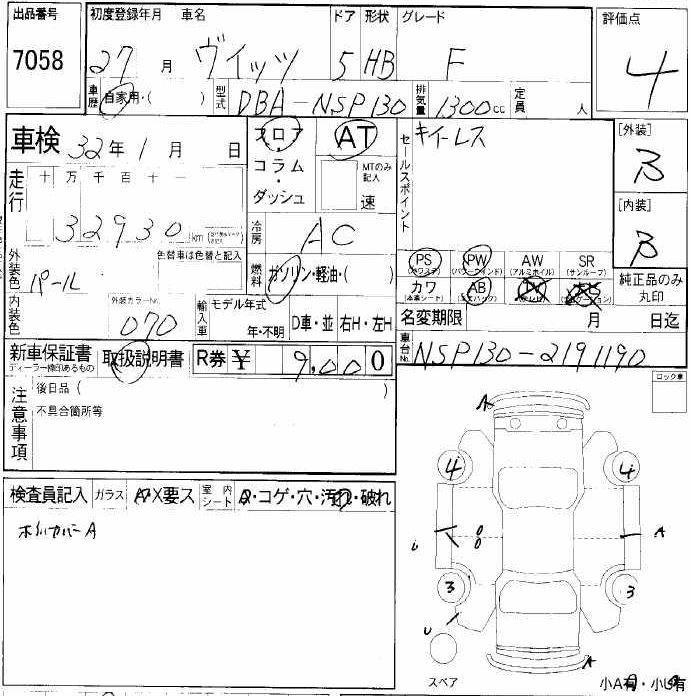 出品番号 初度登録年月 車名 ドア 形状 グレード 評価点
7058 27 月 ヴィッツ 5 HB F 4
車歴 自家用・( ) 型式 DBA-NSP130 排気量 1300cc 定員 人
車検 32年 1月 日 フロア AT セールスポイント キーレス [外装]
B
走行 十 万 千 百 十 一 コラム・ MTのみ記入
ダッシュ 速
32930 km 冷房 AC [内装]
B
外装色 パール 色替車は色替と記入 燃料 ガソリン・軽油・( )
PS (パワステ) PW (パワーウインド) AW (アルミホイル) SR (サンルーフ)
カワ (本革シート) AB (エアバック) 純正品のみ丸印
内装色 外装カラーNo. 070 輸入車 モデル年式 年・不明 D車・並 右H・左H
名変期限 月 日迄
新車保証書 ディーラー捺印あるもの 取扱説明書 R券 ¥ 9,000 車台No. NSP130-2191190
注意事項 後日品 ( )
不具合箇所等
ロック車
A
4 4
検査員記入 ガラス A・X要ス 室内シート ・コゲ・穴・汚れ・破れ
ホイルカバーA
U A
3 3
U
スペア A
小A有・小U有